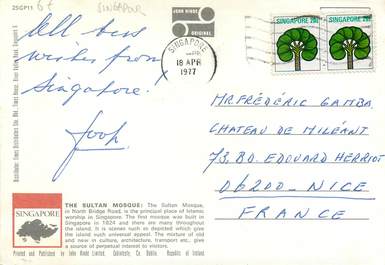 25GP11
6€
SINGAPOUR
JOHN HINDE
ORIGINAL
SINGAPORE
18 APR
1977
SINGAPORE
SINGAPORE
All best
wishes from
Singapore!
Joop
MR. FRÉDÉRIC GAMBA,
CHATEAU DE MILÉANT,
73, BD. EDOUARD HERRIOT
06200 - NICE
FRANCE
SINGAPORE
THE SULTAN MOSQUE: The Sultan Mosque,
in North Bridge Road, is the principal place of Islamic
worship in Singapore. The first mosque was built in
Singapore in 1824 and there are many throughout
the island. It is scenes such as depicted which give
the island such universal appeal. The mixture of old
and new in culture, architecture, transport etc., give
a source of perpetual interest to visitors.
Printed and Published by John Hinde Limited, Cabinteely, Co. Dublin, Republic of Ireland